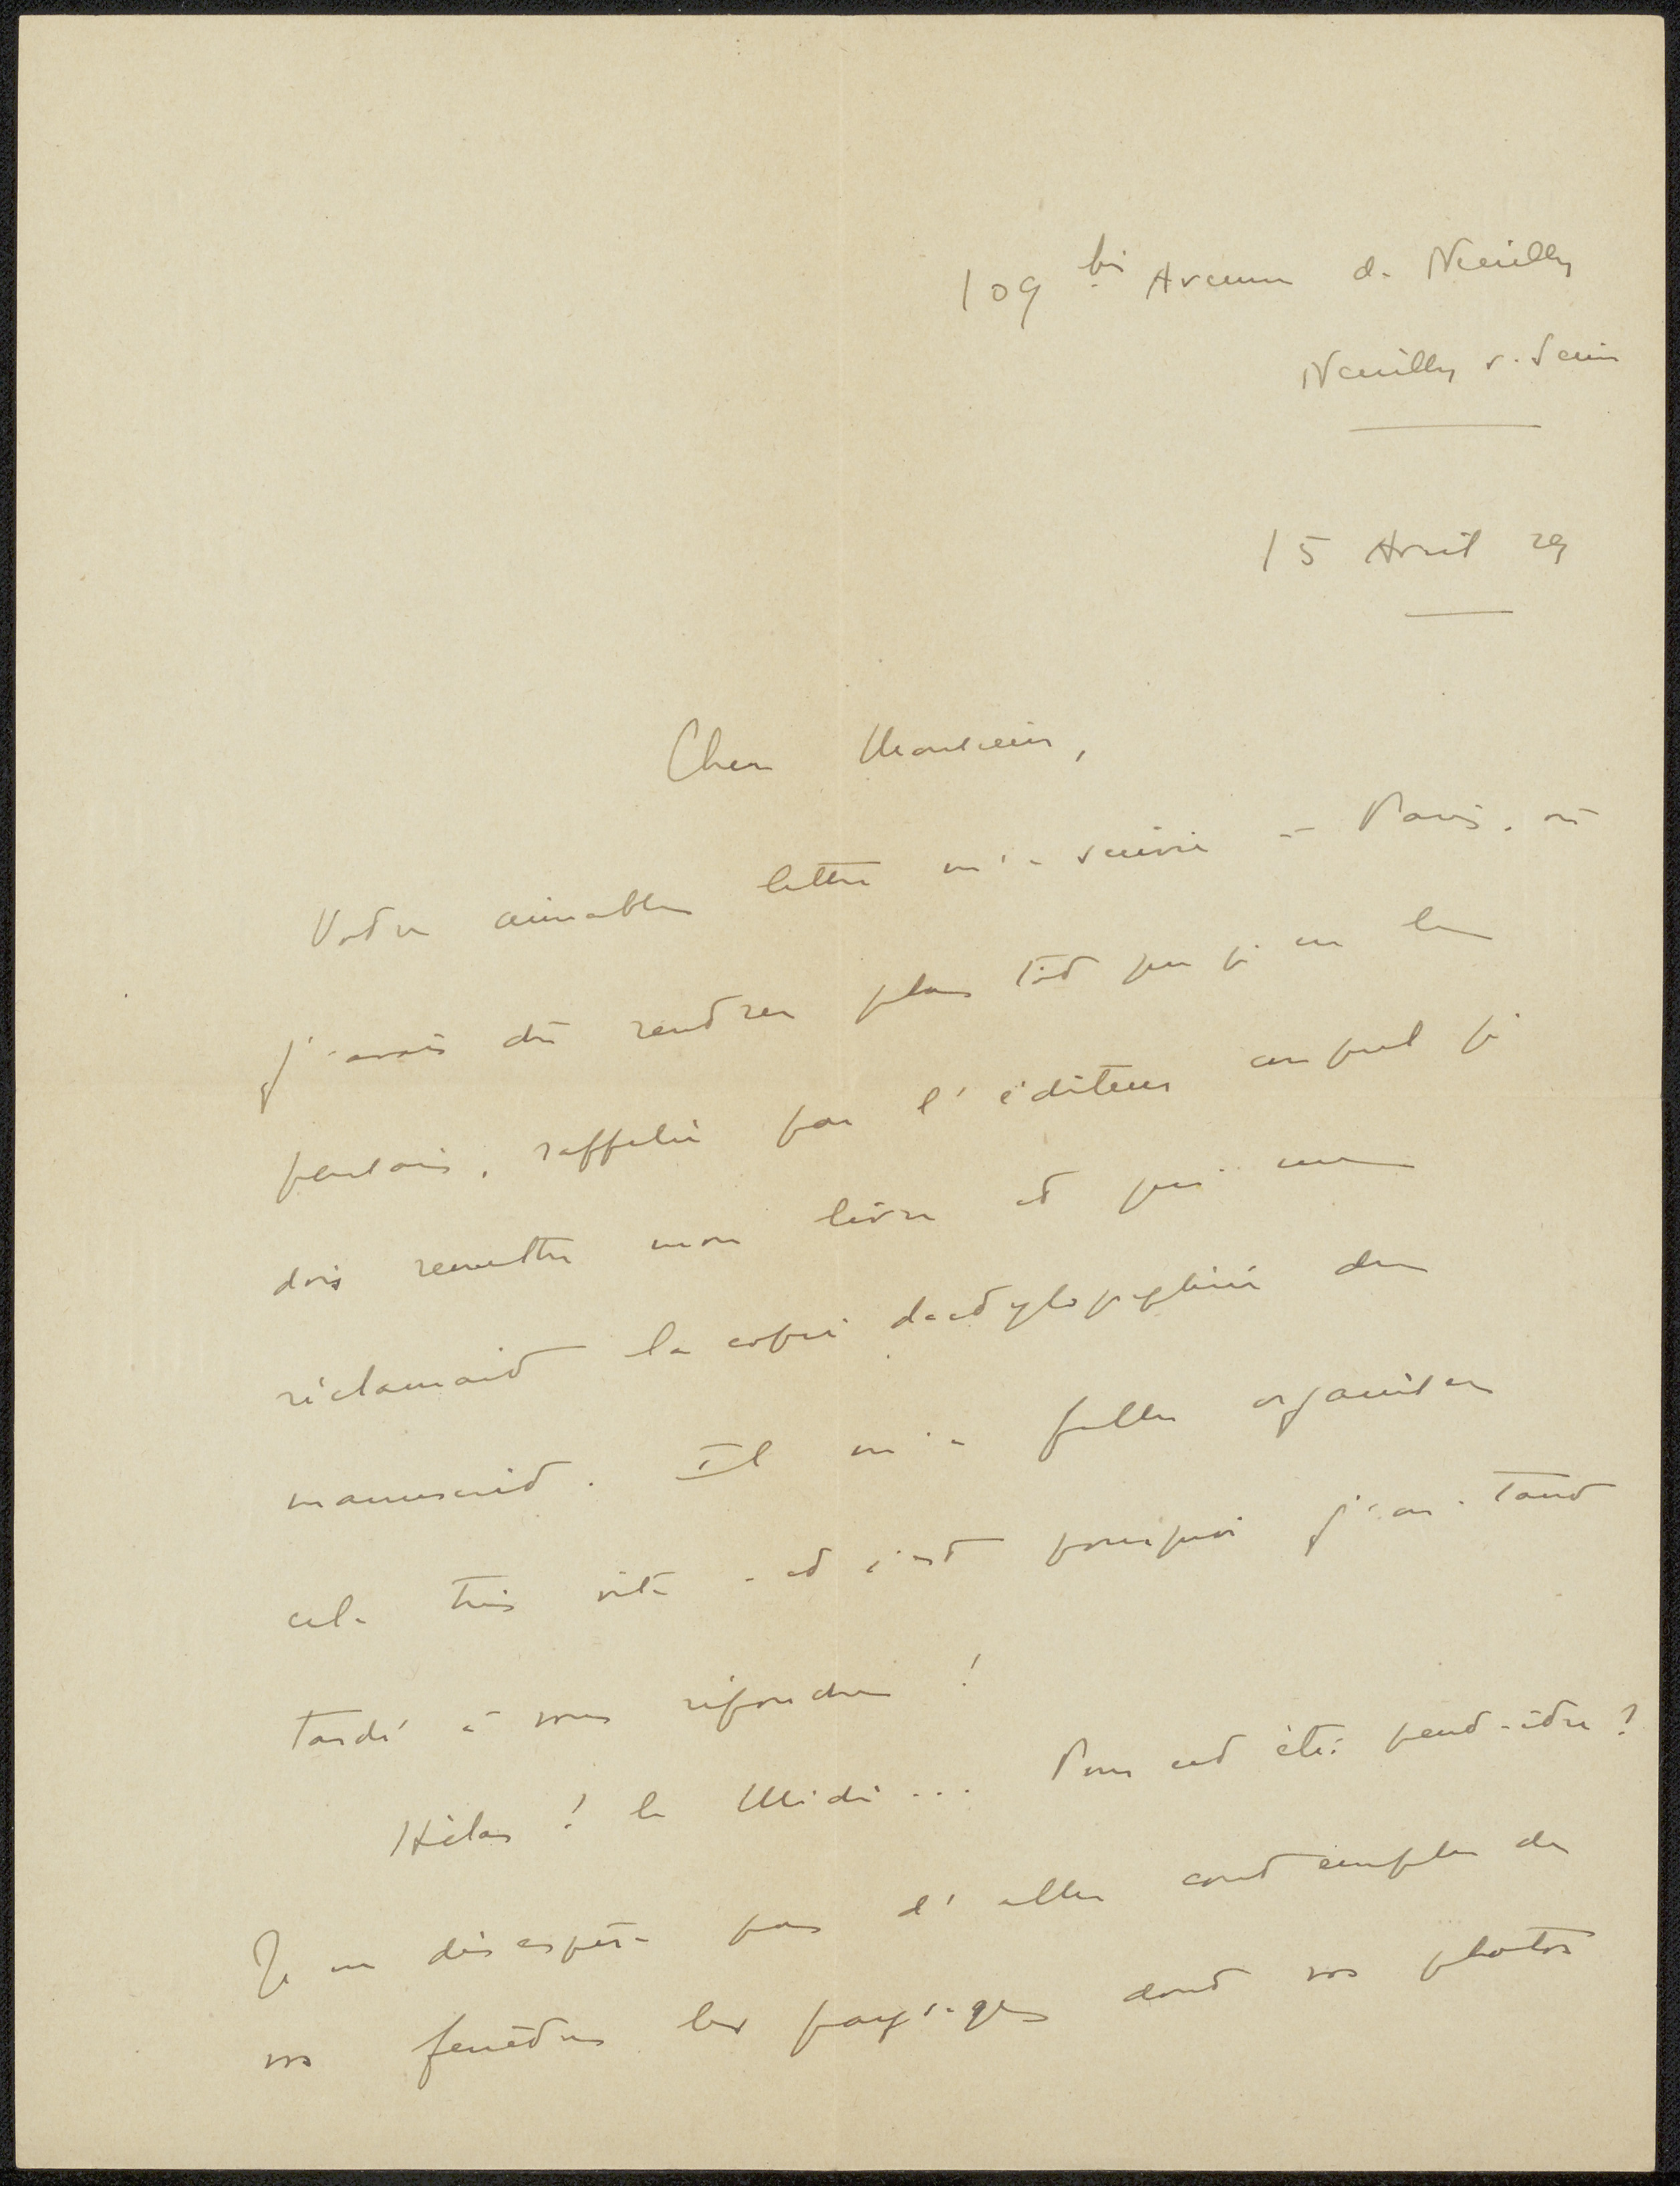 109 bis Avenue de Neuilly
Neuilly s. Seine
15 Avril 29
Cher Monsieur,
Votre aimable lettre m'a suivie à Paris, où
j'avais dû rentrer plus tôt que je ne le
pensais, rappelée par l'éditeur auquel je
dois remettre mon livre et qui me
réclamait la copie dactylographiée du
manuscrit. Il m'a fallu organiser
cela très vite - et c'est pourquoi j'ai tant
tardé à vous répondre !
Hélas ! le Midi... Pour cet été peut-être ?
Je ne désespère pas d'aller contempler de
vos fenêtres les paysages dont vos photos